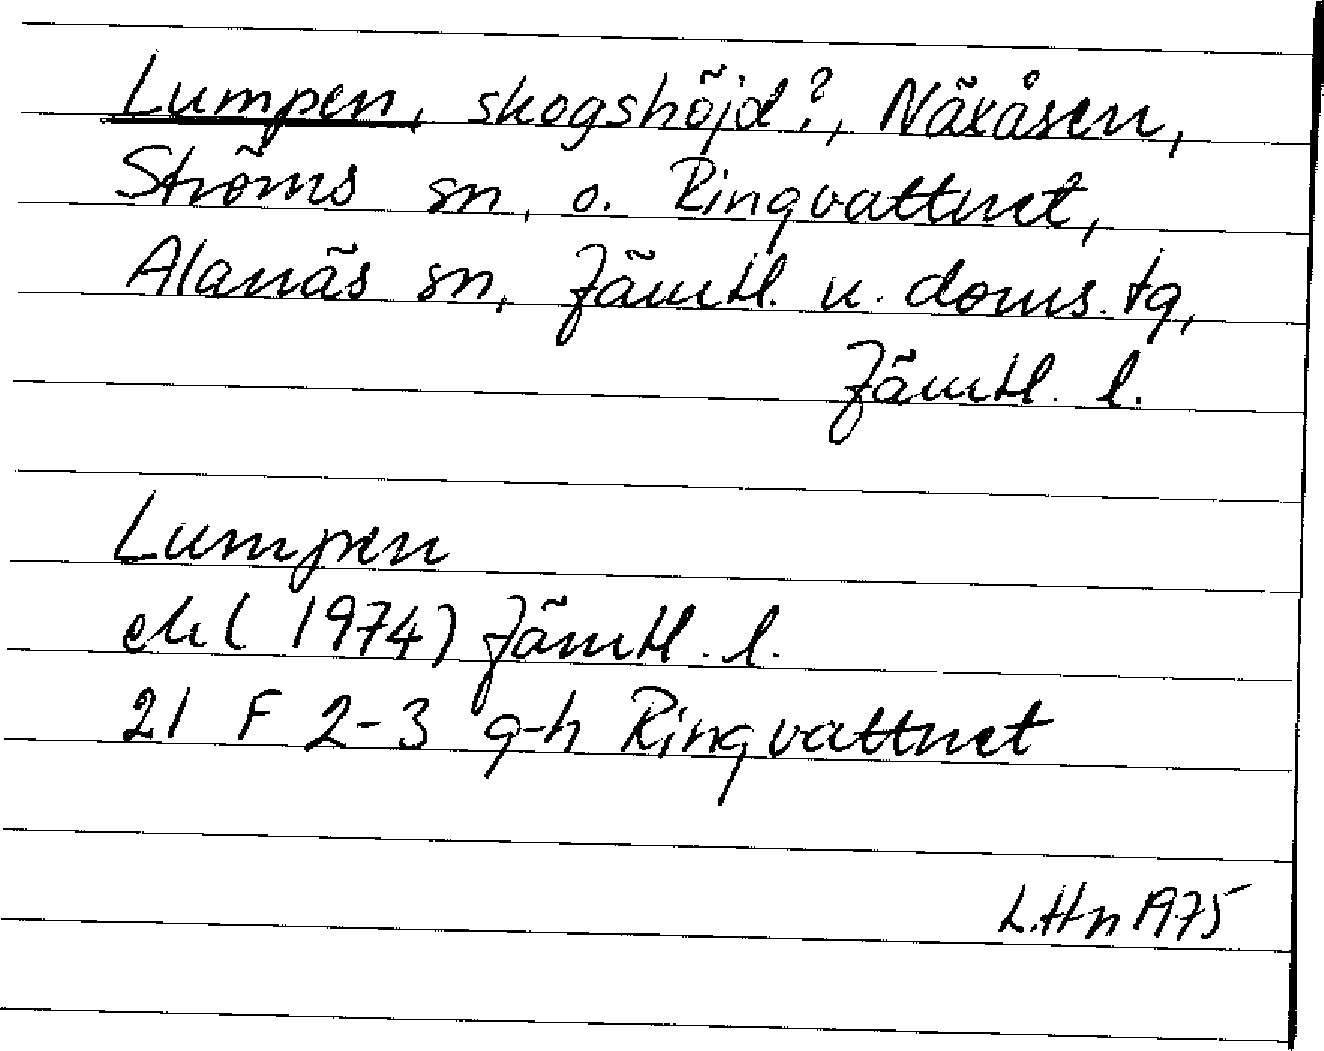 Lumpen, skogshöjd?, Näxåsen,
Ströms sn, o. Ringvattnet,
Alanäs sn, Jämtl. n. doms. tg,
Jämtl. l.
Lumpen
ek (1974) Jämtl. l.
21 F 2-3 g-h Ringvattnet
L.Hn 1975